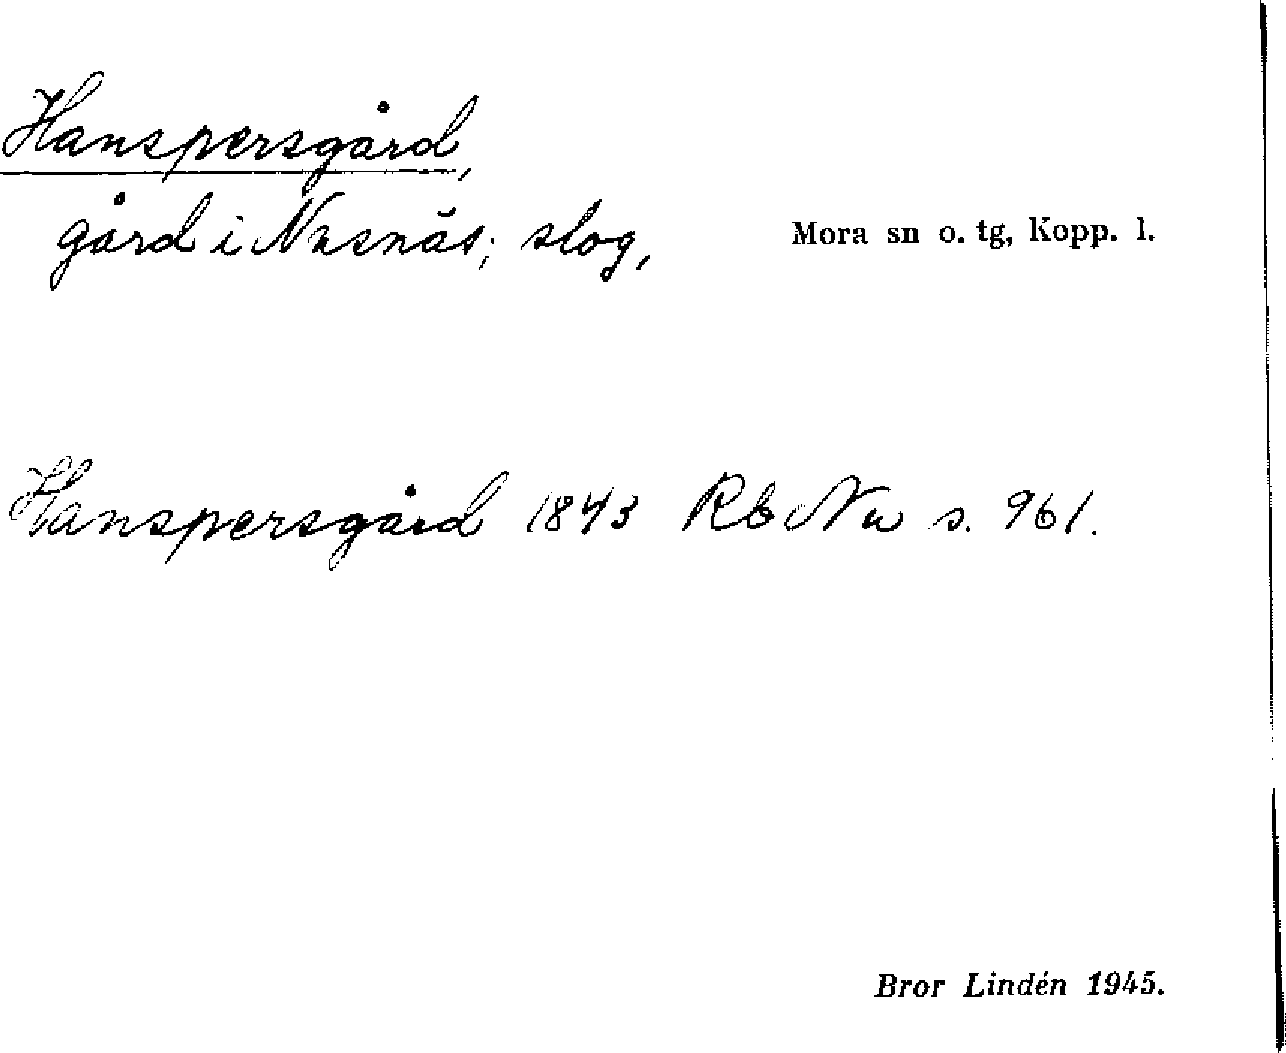 Hanspersgård,
gård i Nusnäs; slog,
Mora sn o. tg, Kopp. l.
Hanspersgård 1843 Rb Nu s. 961.
Bror Lindén 1945.